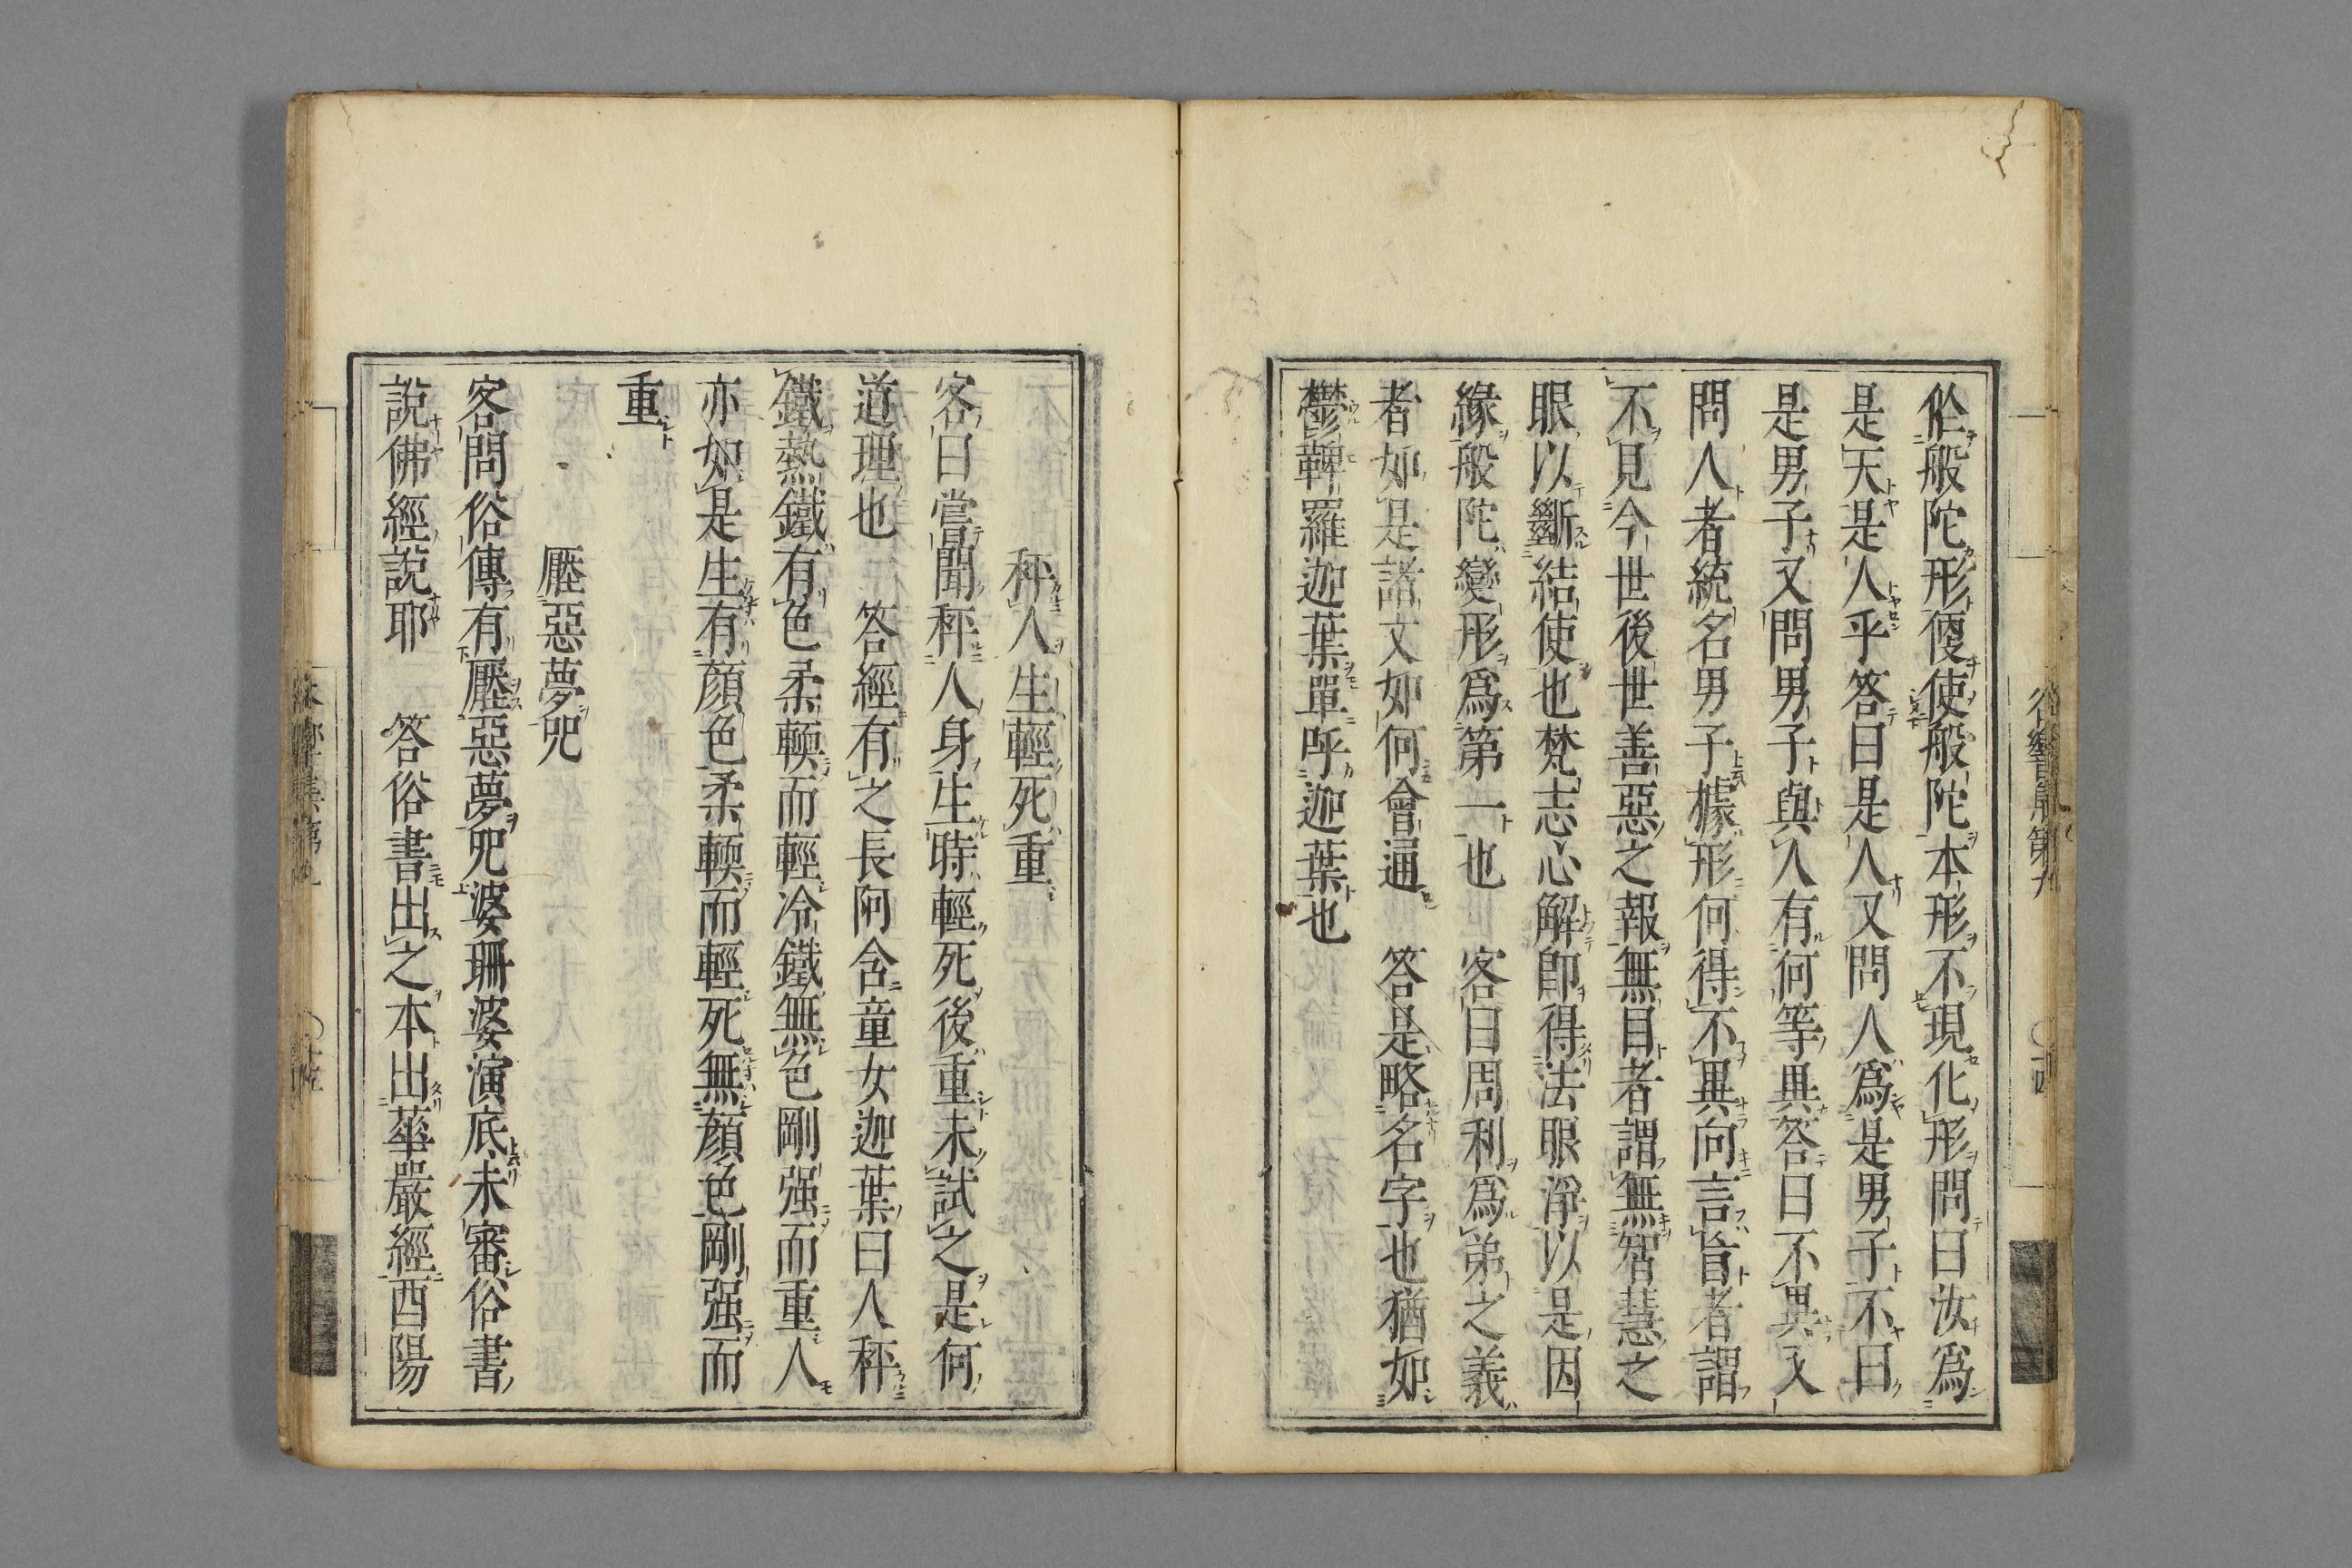 作般陀形便使般陀本形不現化形問曰汝爲
是天是人乎答曰是人又問人爲是男子不曰
是男子又問男子與人有何等異答曰不異又
問人者統名男子據形何得不異向言旨者謂
不見今世後世善惡之報無目者謂無智慧之
眼以斷結使也梵志心解即得法眼淨以是因
緣般陀變形爲第一也　客曰周利爲弟之義
者如是諸文如何會通　答是略名字也猶如
鬱鞞羅迦葉單呼迦葉也
秤人生輕死重
客曰嘗聞秤人身生時輕死後重未試之是何
道理也　答經有之長阿含童女迦葉曰人秤
鐵熱鐵有色柔輭而輕冷鐵無色剛强而重人
亦如是生有顏色柔輭而輕死無顏色剛强而
重
壓惡夢兕
客問俗傳有壓惡夢兕婆珊婆演底未審俗書
說佛經說耶　答俗書出之本出華嚴經酉陽